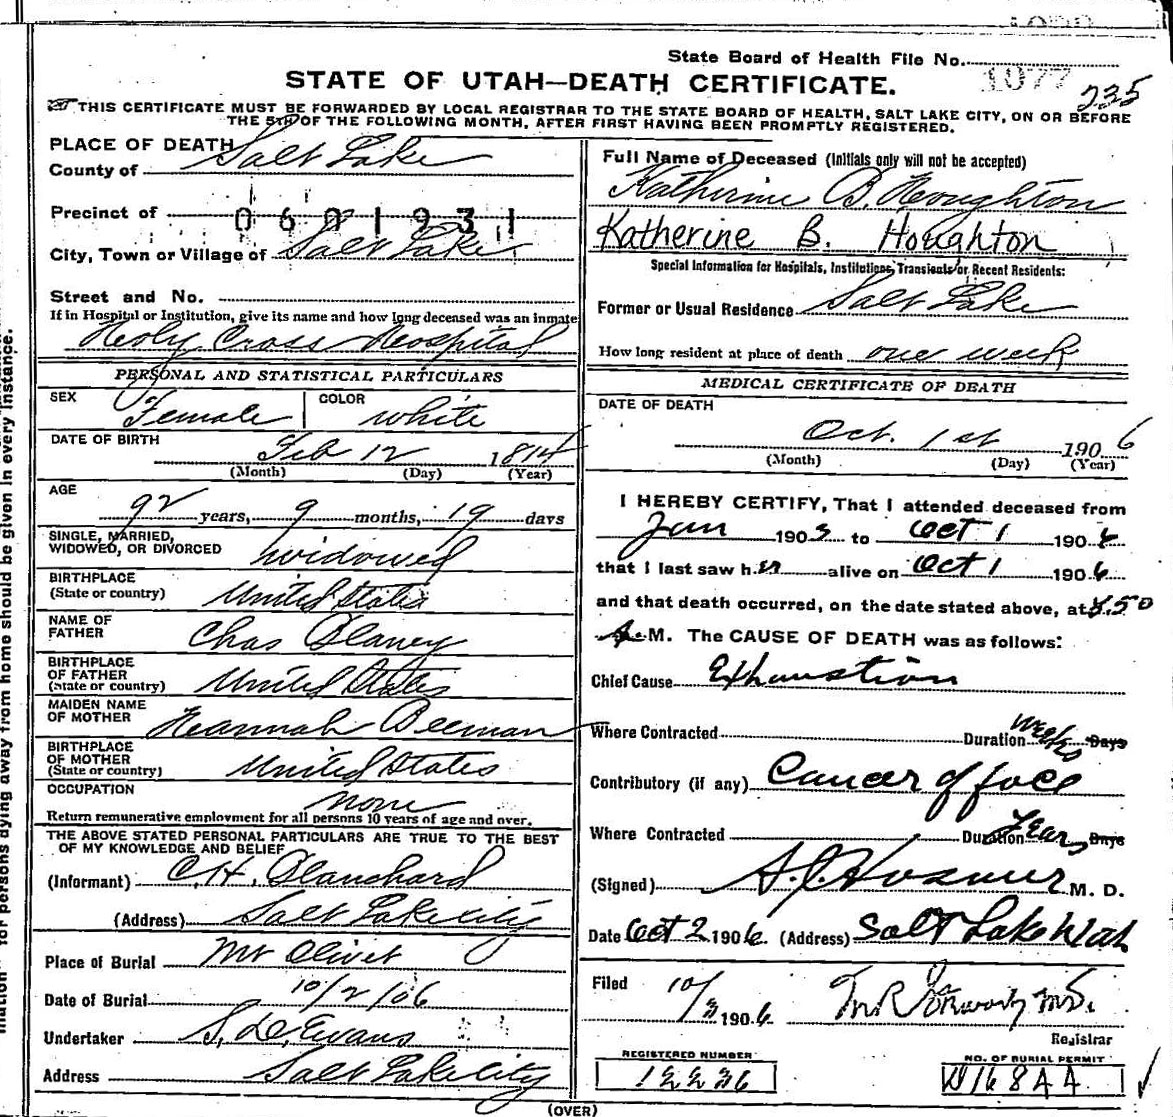 State Board of Health File No.
1077
235
STATE OF UTAH—DEATH CERTIFICATE.
THIS CERTIFICATE MUST BE FORWARDED BY LOCAL REGISTRAR TO THE STATE BOARD OF HEALTH, SALT LAKE CITY, ON OR BEFORE
THE 5TH OF THE FOLLOWING MONTH, AFTER FIRST HAVING BEEN PROMPTLY REGISTERED.
PLACE OF DEATH
County of Salt Lake
Precinct of
0601931
City, Town or Village of Salt Lake
Street and No.
If in Hospital or Institution, give its name and how long deceased was an inmate
Holy Cross Hospital
PERSONAL AND STATISTICAL PARTICULARS
SEX Female COLOR white
DATE OF BIRTH
Feb 12 1814
(Month) (Day) (Year)
AGE
92 years, 9 months, 19 days
SINGLE, MARRIED,
WIDOWED, OR DIVORCED widowed
BIRTHPLACE
(State or country) United States
NAME OF
FATHER Chas Blaney
BIRTHPLACE
OF FATHER
(State or country) United States
MAIDEN NAME
OF MOTHER Hannah Beeman
BIRTHPLACE
OF MOTHER
(State or country) United States
OCCUPATION none
Return remunerative employment for all persons 10 years of age and over.
THE ABOVE STATED PERSONAL PARTICULARS ARE TRUE TO THE BEST
OF MY KNOWLEDGE AND BELIEF
(Informant) C.H. Blanchard
(Address) Salt Lake City
Place of Burial Mt Olivet
Date of Burial 10/2/06
Undertaker S. D. Evans
Address Salt Lake City
Full Name of Deceased (Initials only will not be accepted)
Katherine B. Houghton
Katherine B. Houghton
Special Information for Hospitals, Institutions, Transients or Recent Residents:
Former or Usual Residence Salt Lake
How long resident at place of death one week
MEDICAL CERTIFICATE OF DEATH
DATE OF DEATH
Oct. 1st 1906
(Month) (Day) (Year)
I HEREBY CERTIFY, That I attended deceased from
Jan 1903 to Oct 1 1906
that I last saw her alive on Oct 1 1906
and that death occurred, on the date stated above, at 8.50
A.M. The CAUSE OF DEATH was as follows:
Chief Cause Exhaustion
Where Contracted Duration Weeks Days
Contributory (if any) Cancer of face
Where Contracted Duration Years Days
(Signed) A.J. Hosmer M. D.
Date Oct 2 1906. (Address) Salt Lake Utah
Filed 10/3 1906
Registrar
REGISTERED NUMBER
12236
NO. OF BURIAL PERMIT
D16844
(OVER)
for persons dying away from home should be given in every instance.